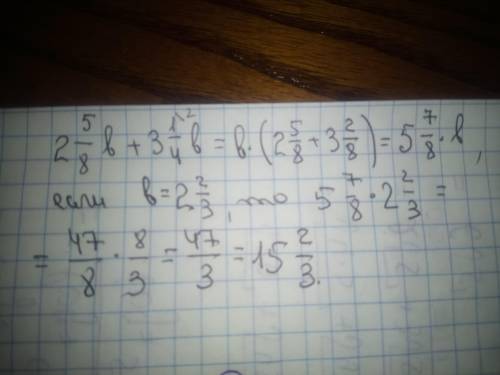 2 5/8 b + 3 1/4 ^2 b = b · (2 5/8 + 3 2/8) = 5 7/8 · b,
если b = 2 2/3, то 5 7/8 · 2 2/3 =
= 47/8 · 8/3 = 47/3 = 15 2/3.